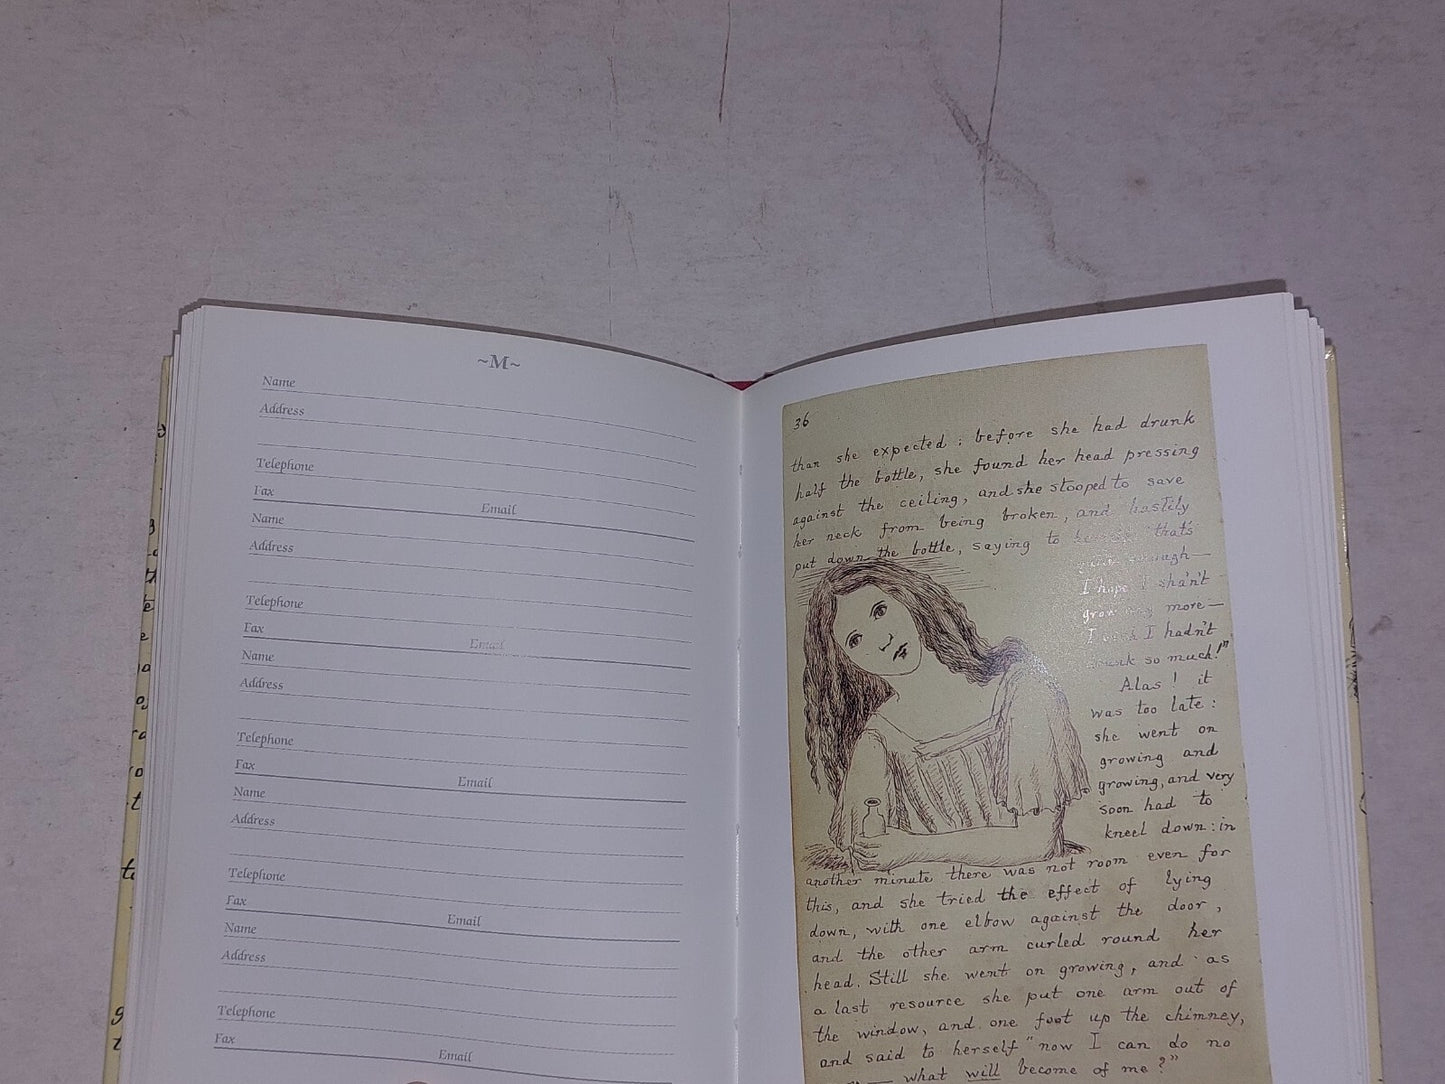 ~M~
Name
Address
Telephone
Fax Email
Name
Address
Telephone
Fax Email
Name
Address
Telephone
Fax Email
Name
Address
Telephone
Fax Email
Name
Address
Telephone
Fax Email
36
than she expected: before she had drunk
half the bottle, she found her head pressing
against the ceiling, and she stooped to save
her neck from being broken, and hastily
put down the bottle, saying to that's
I hope I shan't
grow any more—
I I hadn't
so much!"
Alas! it
was too late:
she went on
growing and
growing, and very
soon had to
kneel down: in
another minute there was not room even for
this, and she tried the effect of lying
down, with one elbow against the door,
and the other arm curled round her
head. Still she went on growing, and as
a last resource she put one arm out of
the window, and one foot up the chimney,
and said to herself "now I can do no
— what will become of me?"